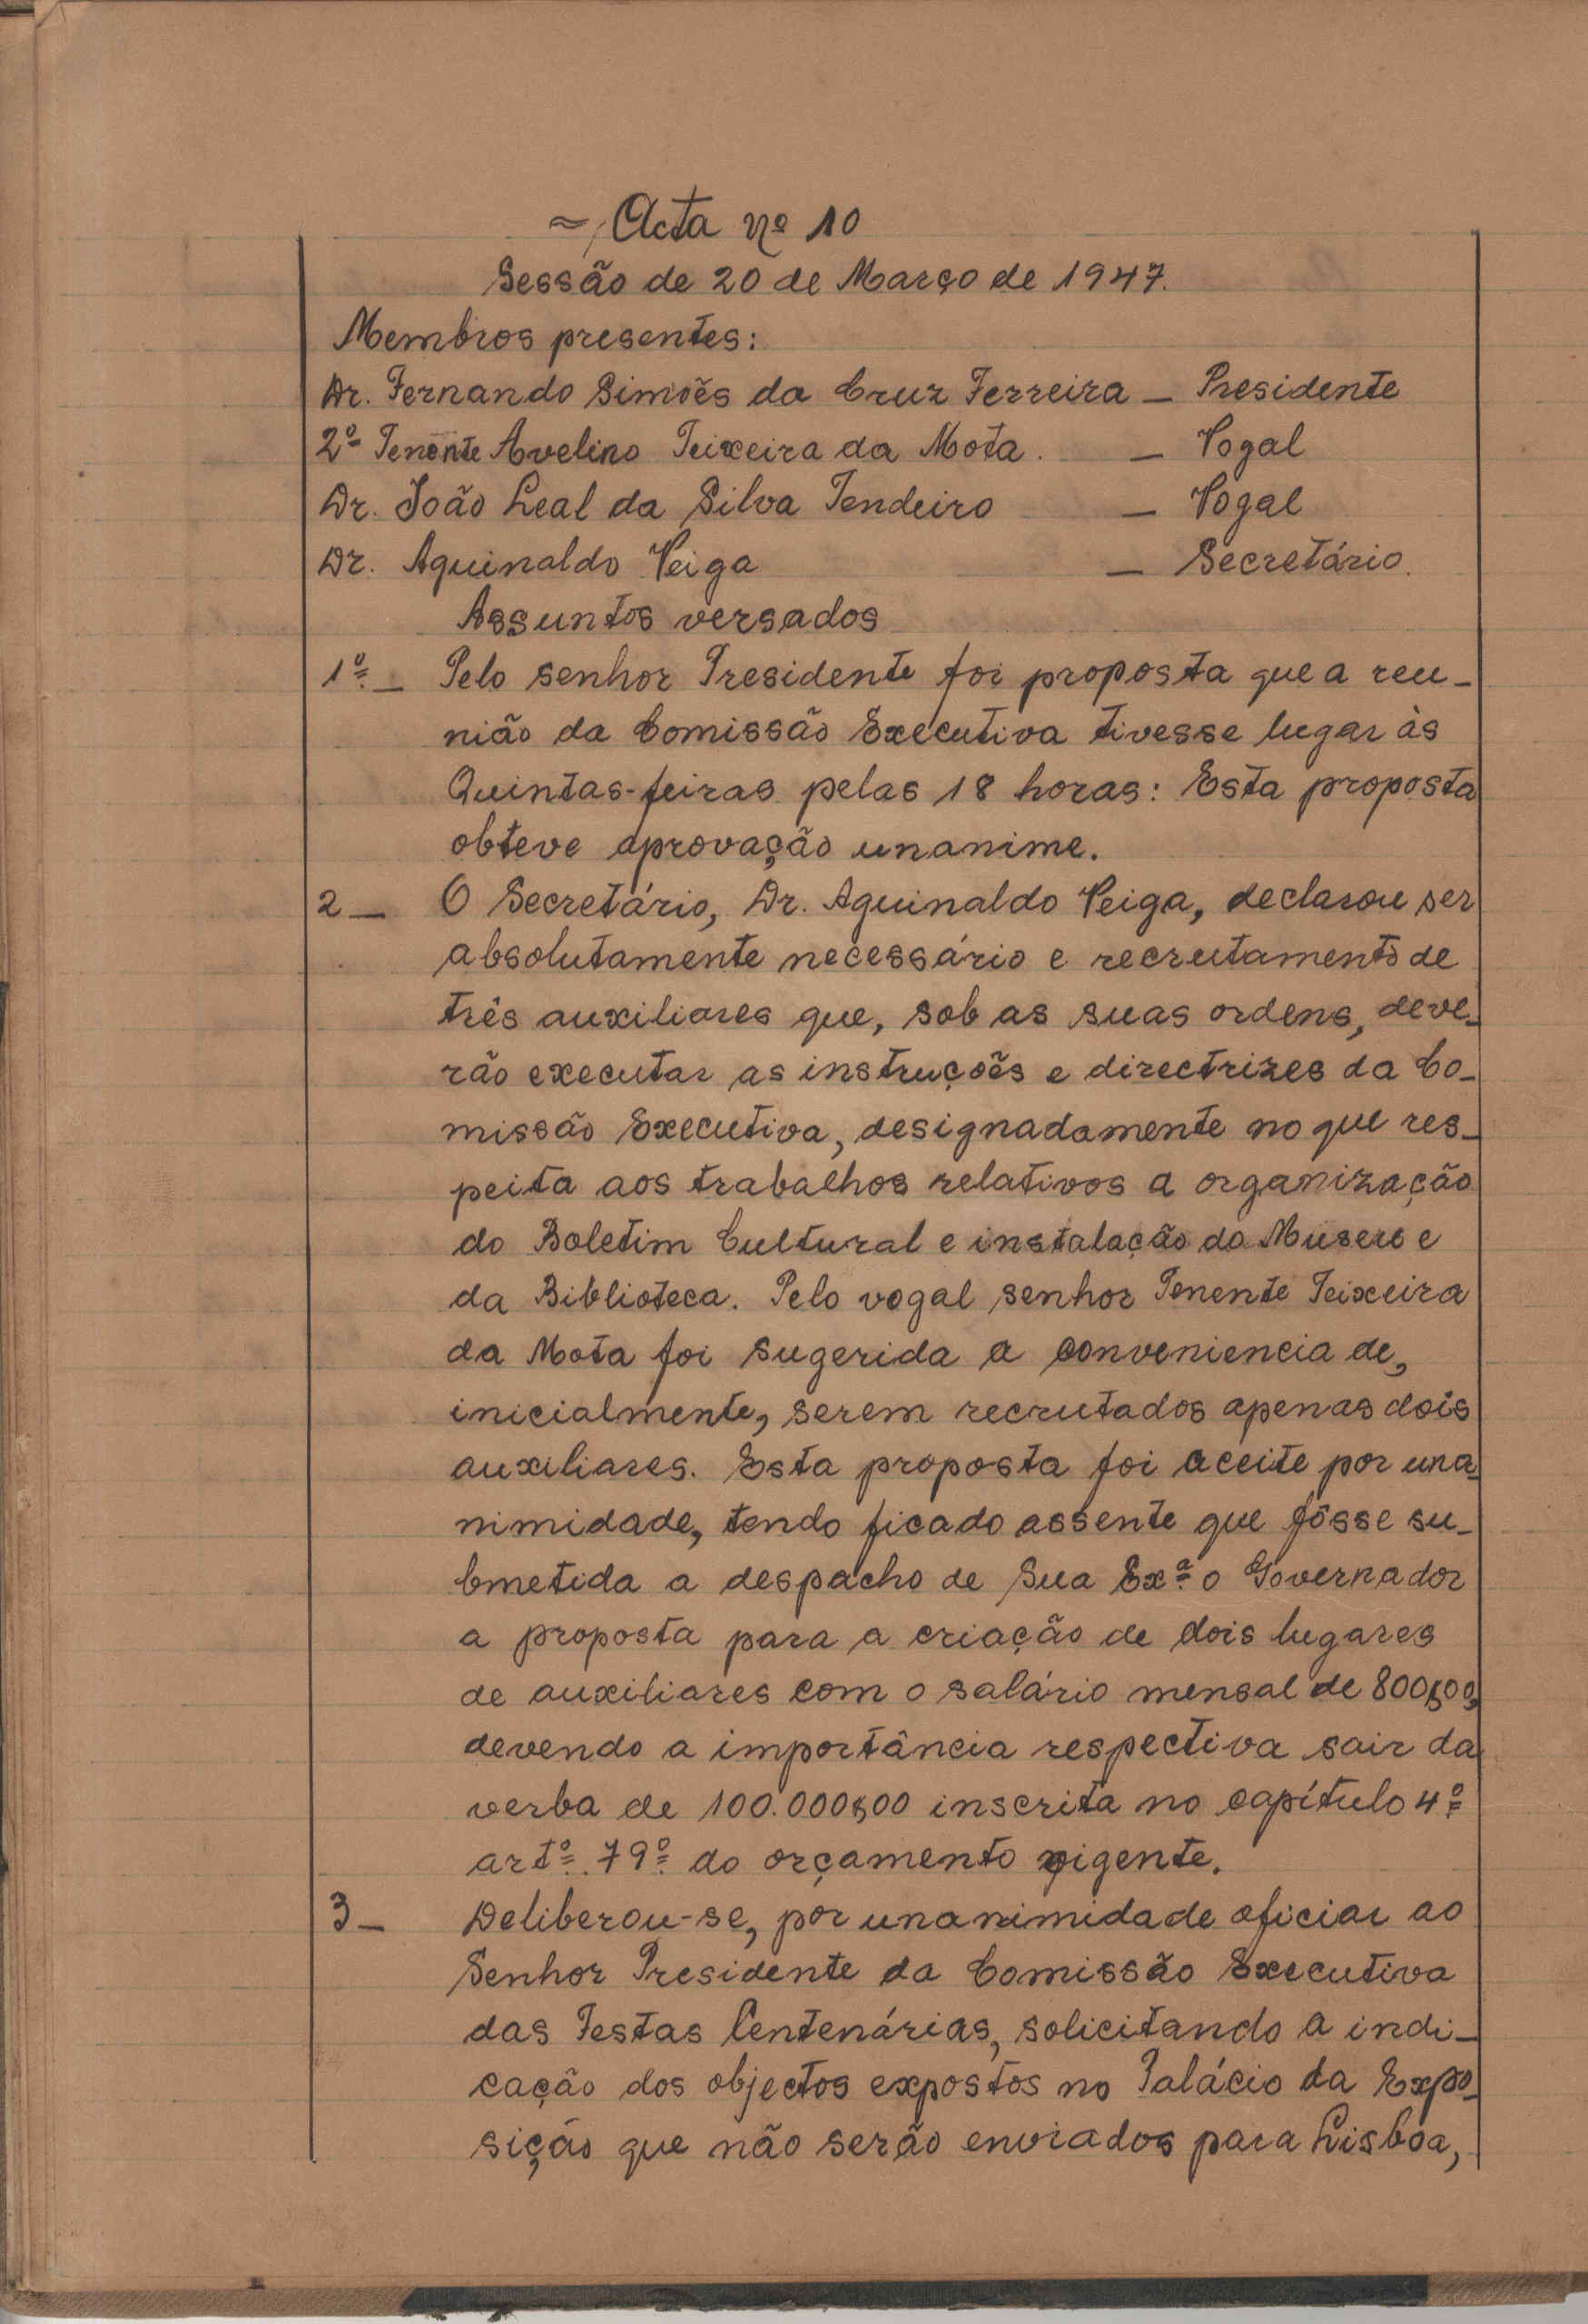 ≈ Acta nº 10
Sessão de 20 de Março de 1947.
Membros presentes:
Dr. Fernando Simões da Cruz Ferreira – Presidente
2º Tenente Avelino Teixeira da Mota. – Vogal
Dr. João Leal da Silva Tendeiro – Vogal
Dr. Aguinaldo Veiga – Secretário.
Assuntos versados
1º – Pelo senhor Presidente foi proposta que a reu-
nião da Comissão Executiva tivesse lugar às
Quintas-feiras pelas 18 horas: Esta proposta
obteve aprovação unanime.
2 – O Secretário, Dr. Aguinaldo Veiga, declarou ser
absolutamente necessário e recrutamento de
três auxiliares que, sob as suas ordens, deve-
rão executar as instruções e directrizes da Co-
missão Executiva, designadamente no que res-
peita aos trabalhos relativos a organização
do Boletim Cultural e instalação do Museu e
da Biblioteca. Pelo vogal senhor Tenente Teixeira
da Mota foi sugerida a conveniencia de,
inicialmente, serem recrutados apenas dois
auxiliares. Esta proposta foi aceite por una-
nimidade, tendo ficado assente que fôsse su-
bmetida a despacho de Sua Exª o Governador
a proposta para a criação de dois lugares
de auxiliares com o salário mensal de 800$00,
devendo a importância respectiva sair da
verba de 100.000$00 inscrita no capítulo 4º
artº. 79º do orçamento vigente.
3 – Deliberou-se, por unanimidade oficiar ao
Senhor Presidente da Comissão Executiva
das Festas Centenárias, solicitando a indi-
cação dos objectos expostos no Palácio da Expo-
sição que não serão enviados para Lisboa,